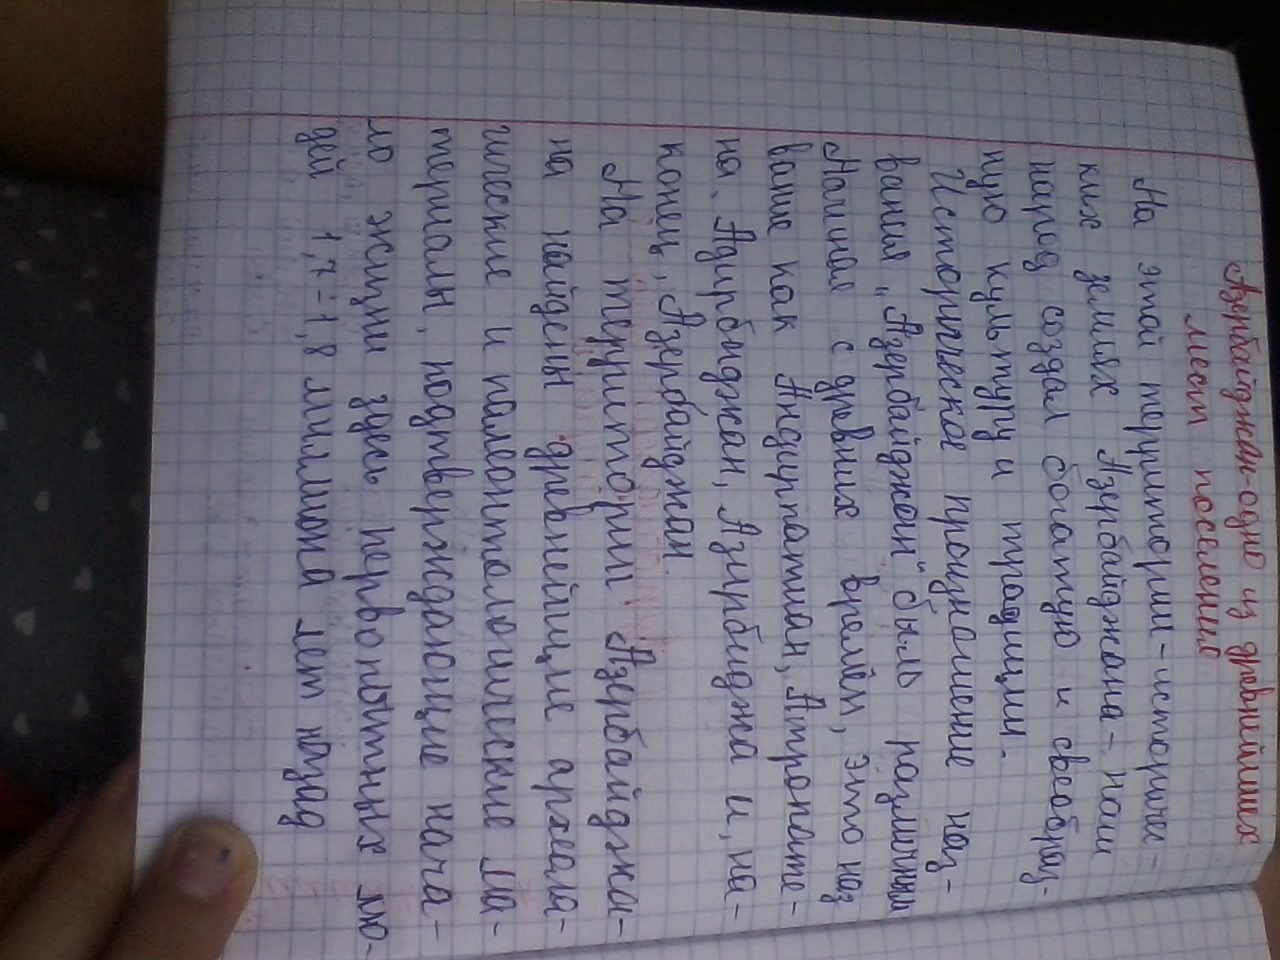 Азербайджан-одно из древнейших
мест поселению
На этой территории-историчес-
ких землях Азербайджана-наш
народ создал богатую и своеобраз-
ную культуру и традиции.
Историческое проиzношение наз-
вания „Азербайджан" было различным
Начиная с древних времён, это наз
вание как Андирпатиан, Атропате-
на, Адирбыджан, Азирбиджа и, на-
конец, Азербайджан.
На территории Азербайджа-
на найдены древнейшие архала-
гические и палеонтологические ма-
териалы, подтверждающие нача-
ло жизни здесь первобытных лю-
дей 1,7-1,8 миллиона лет назад